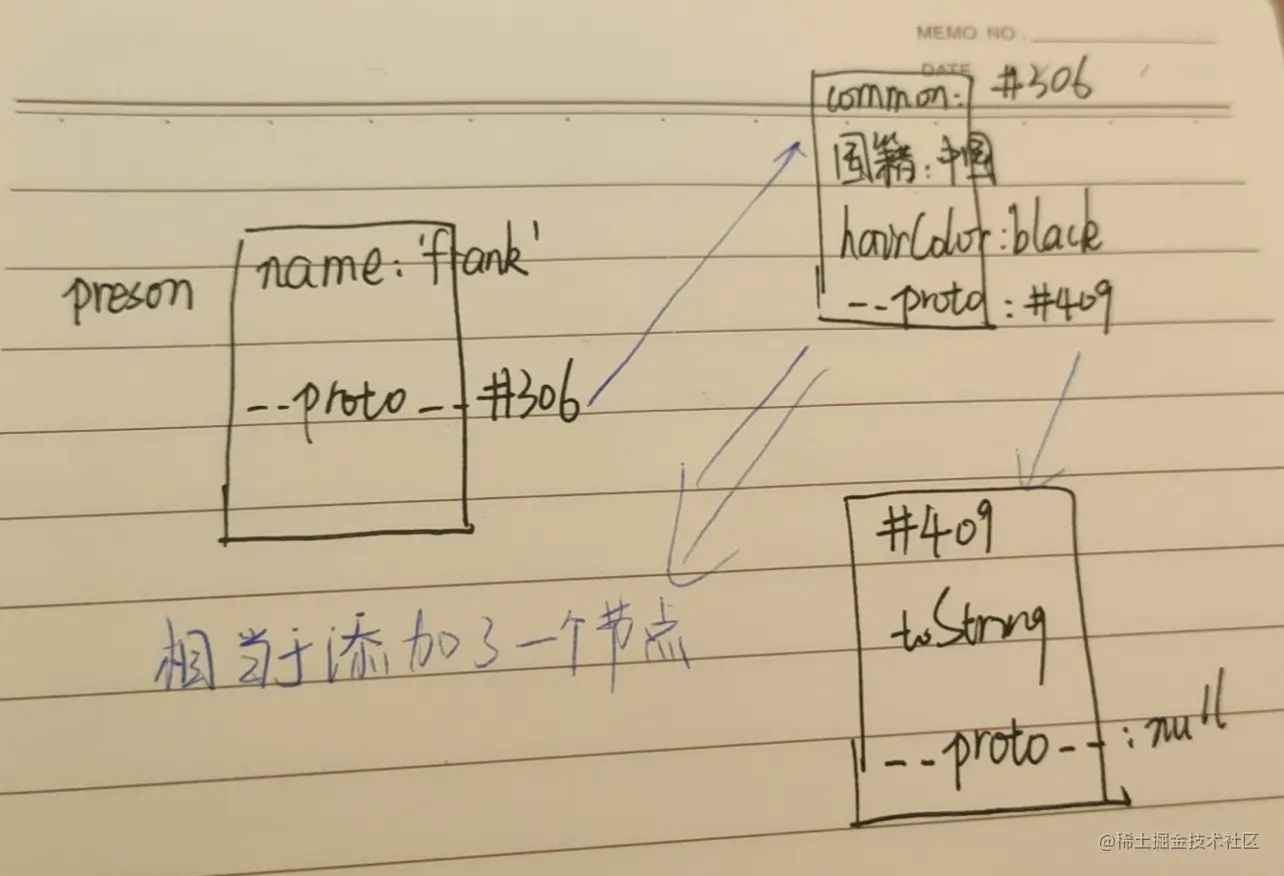 MEMO NO.
DATE
common: #306
国籍:中国
hairColor:black
--proto:#409
preson
name:'frank'
--proto--#306
相当于添加了一个节点
#409
toString
--proto--:null
@稀土掘金技术社区